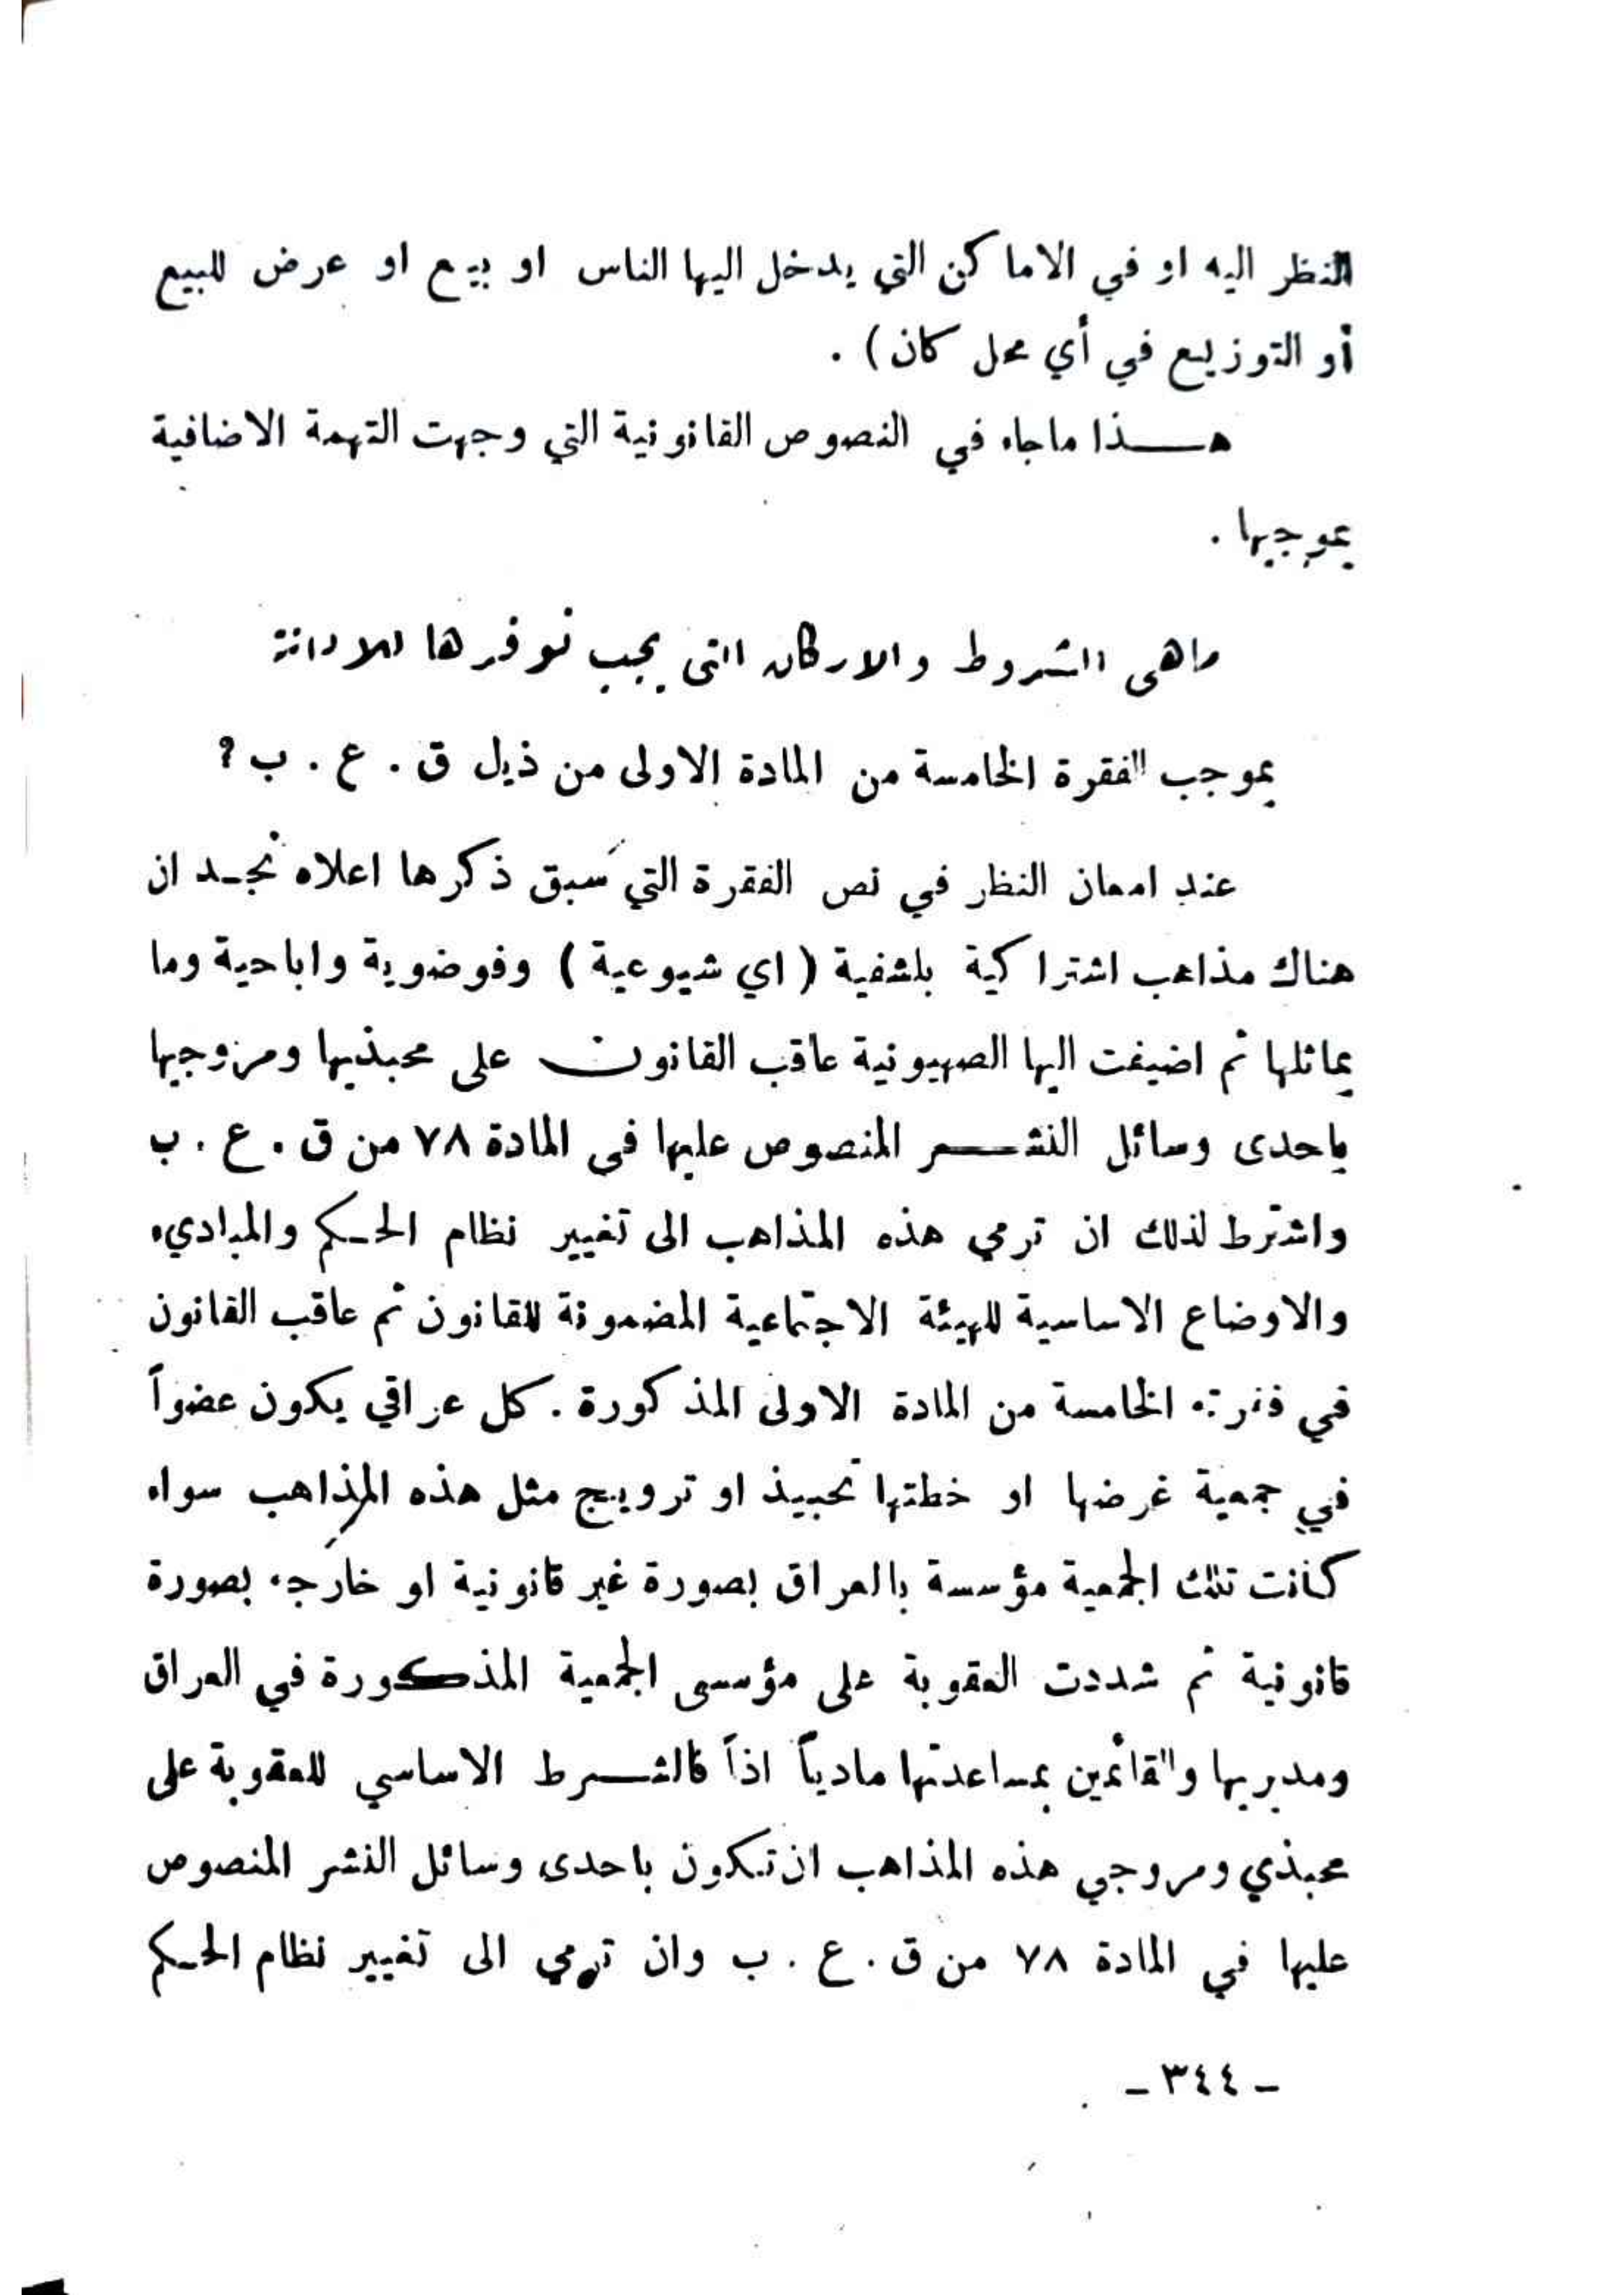 النظر اليه او في الاماكن التي يدخل اليها الناس او بيع او عرض للبيع
أو التوزيع في أي محل كان) .
هذا ماجاء في النصوص القانونية التي وجهت التهمة الاضافية
بموجبها .
ماهي الشروط والاركان التي يجب توفرها للادانة
بموجب الفقرة الخامسة من المادة الاولى من ذيل ق . ع . ب ؟
عند امعان النظر في نص الفقرة التي سبق ذكرها اعلاه نجد ان
هناك مذاهب اشتراكية بلشفية ( اي شيوعية ) وفوضوية واباحية وما
يماثلها ثم اضيفت اليها الصهيونية عاقب القانون على محبذيها ومروجيها
باحدى وسائل النشر المنصوص عليها في المادة ٧٨ من ق . ع . ب
واشترط لذلك ان ترمي هذه المذاهب الى تغيير نظام الحكم والمباديء
والاوضاع الاساسية للهيئة الاجتماعية المضمونة للقانون ثم عاقب القانون
في فقرته الخامسة من المادة الاولى المذكورة . كل عراقي يكون عضواً
في جمعية غرضها او خطتها تحبيذ او ترويج مثل هذه المذاهب سواء
كانت تلك الجمعية مؤسسة بالعراق بصورة غير قانونية او خارجه بصورة
قانونية ثم شددت العقوبة على مؤسسي الجمعية المذكورة في العراق
ومديريها والقائمين بمساعدتها مادياً اذاً فالشرط الاساسي للعقوبة على
محبذي ومروجي هذه المذاهب ان تكون باحدى وسائل النشر المنصوص
عليها في المادة ٧٨ من ق . ع . ب وان ترمي الى تغيير نظام الحكم
- ٣٤٤ -